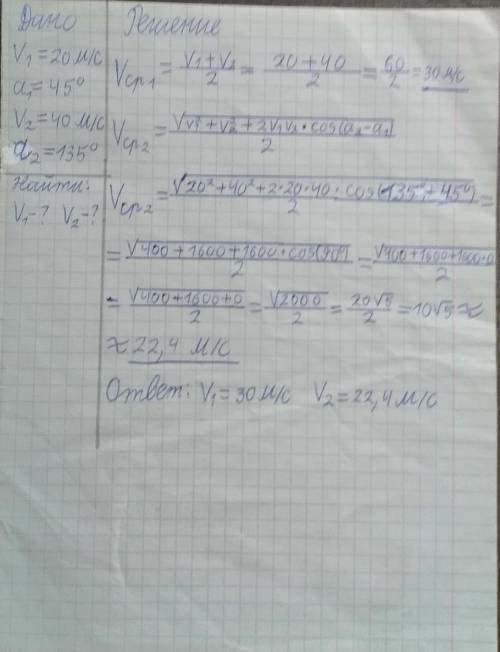 Дано
V₁=20м/с
α₁=45°
V₂=40м/с
α₂=135°
Найти:
V₁-? V₂-?
Решение
Vср₁ = V₁+V₂/2 = 20+40/2 = 60/2 = 30м/с
Vср₂ = √V₁²+V₂²+2V₁V₂·cos(α₂-α₁)/2
Vср₂ = √20²+40²+2·20·40·cos(135°-45°)/2 =
= √400+1600+1600·cos(90°)/2 = √400+1600+1600·0/2
= √400+1600+0/2 = √2000/2 = 20√5/2 = 10√5 ≈
≈ 22,4 м/с
Ответ: V₁=30м/с V₂=22,4м/с